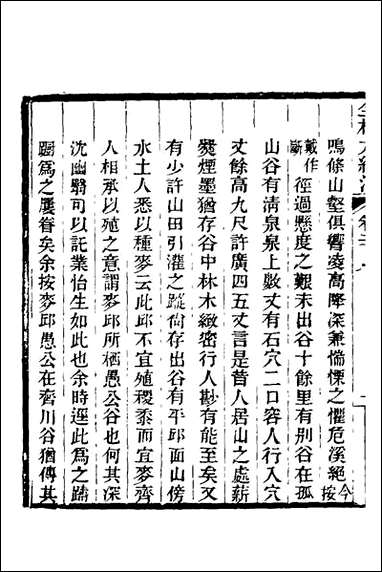 鳴條山壑俱響凌高降深兼惴慄之懼危溪絕今按
戴作斷徑過懸度之艱未出谷十餘里有別谷在孤
山谷有清泉泉上數丈有石穴二口容人行入穴
丈餘高九尺許廣四五丈言是昔人居山之處薪
爨煙墨猶存谷中林木緻密行人尠有能至矣又
有少許山田引灌之蹤尙存出谷有平邱面山傍
水土人悉以種麥云此邱不宜殖稷黍而宜麥齊
人相承以殖之意謂麥邱所栖愚公谷也何其深
沈幽翳可以託業怡生如此也余時逕此爲之躊
躇爲之屢眷矣余按麥邱愚公在齊川谷猶傳其